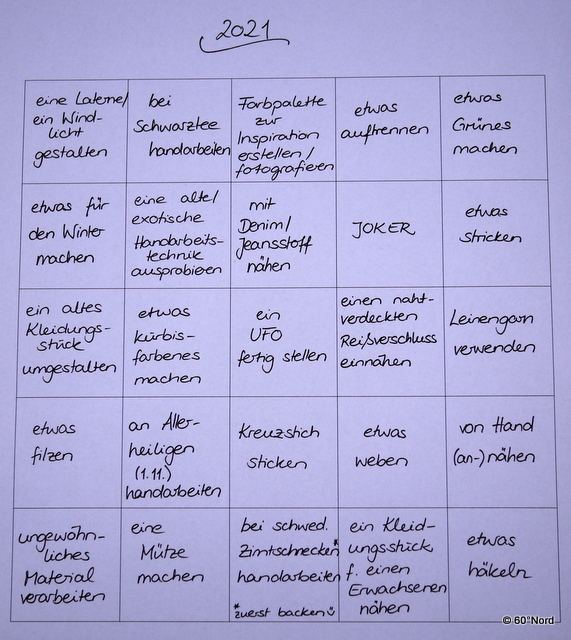 2021
eine Laterne/
ein Wind-
licht
gestalten
bei
Schwarztee
handarbeiten
Farbpalette
zur
Inspiration
erstellen/
fotografieren
etwas
auftrennen
etwas
Grünes
machen
etwas für
den Winter
machen
eine alte/
exotische
Handarbeits-
technik
ausprobieren
mit
Denim/
Jeansstoff
nähen
JOKER
etwas
stricken
ein altes
Kleidungs-
stück
umgestalten
etwas
kürbis-
farbenes
machen
ein
UFO
fertig stellen
einen naht-
verdeckten
Reißverschluss
einnähen
Leinengarn
verwenden
etwas
filzen
an Aller-
heiligen
(1.11.)
handarbeiten
Kreuzstich
sticken
etwas
weben
von Hand
(an-)nähen
ungewöhn-
liches
Material
verarbeiten
eine
Mütze
machen
bei schwed.
Zimtschnecken*
handarbeiten
*zuerst backen☺
ein Kleid-
ungsstück
f. einen
Erwachsenen
nähen
etwas
häkeln
© 60°Nord